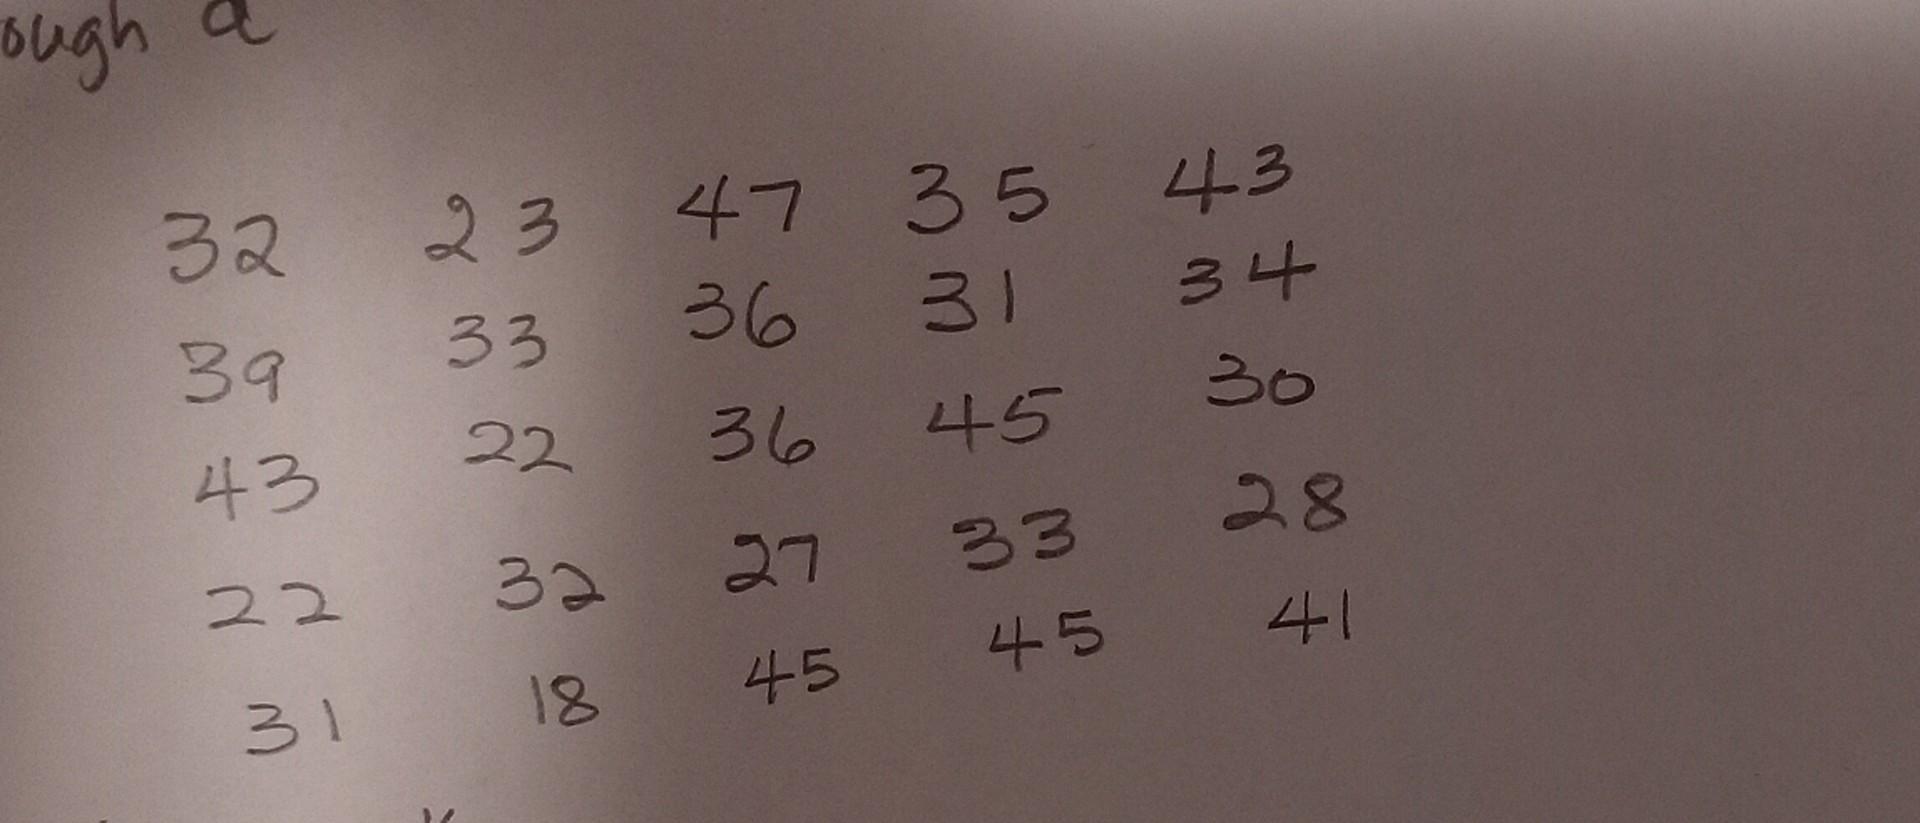 ough a
32 23 47 35 43
39 33 36 31 34
43 22 36 45 30
22 32 27 33 28
31 18 45 45 41